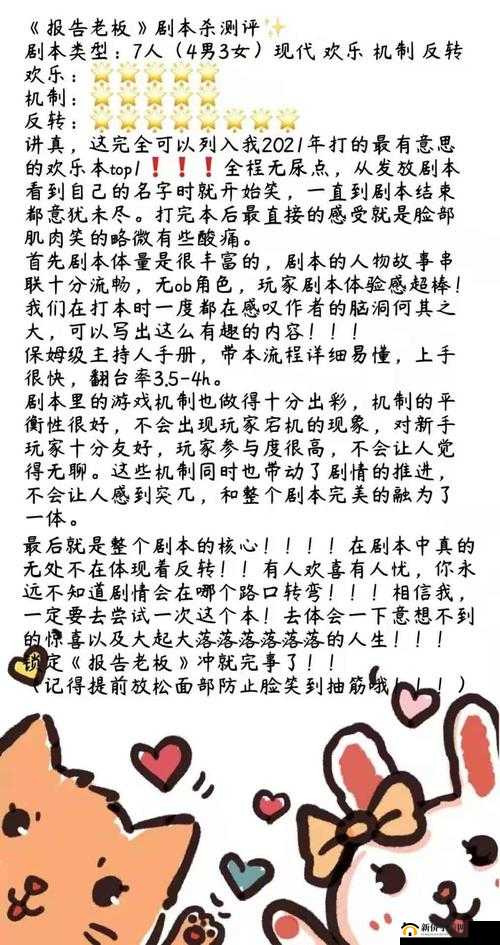 《报告老板》剧本杀测评✨
剧本类型：7人（4男3女）现代 欢乐 机制 反转
欢乐：🌟🌟🌟🌟🌟
机制：🌟🌟🌟🌟🌟
反转：🌟🌟🌟🌟🌟🌟🌟🌟
讲真，这完全可以列入我2021年打的最有意思
的欢乐本top1❗❗❗全程无尿点，从发放剧本
看到自己的名字时就开始笑，一直到剧本结束
都意犹未尽。打完本后最直接的感受就是脸部
肌肉笑的略微有些酸痛。
首先剧本体量是很丰富的，剧本的人物故事串
联十分流畅，无ob角色，玩家剧本体验感超棒！
我们在打本时一度都在感叹作者的脑洞何其之
大，可以写出这么有趣的内容！！！
保姆级主持人手册，带本流程详细易懂，上手
很快，翻台率3.5-4h。
剧本里的游戏机制也做得十分出彩，机制的平
衡性很好，不会出现玩家宕机的现象，对新手
玩家十分友好，玩家参与度很高，不会让人觉
得无聊。这些机制同时也带动了剧情的推进，
不会让人感到突兀，和整个剧本完美的融为了
一体。
最后就是整个剧本的核心！！！！在剧本中真的
无处不在体现着反转！！有人欢喜有人忧，你永
远不知道剧情会在哪个路口转弯！！！相信我，
一定要去尝试一次这个本！去体会一下意想不到
的惊喜以及大起大落落落落落落的人生！！！
锁定《报告老板》冲就完事了！！
（记得提前放松面部防止脸笑到抽筋哦！！！）